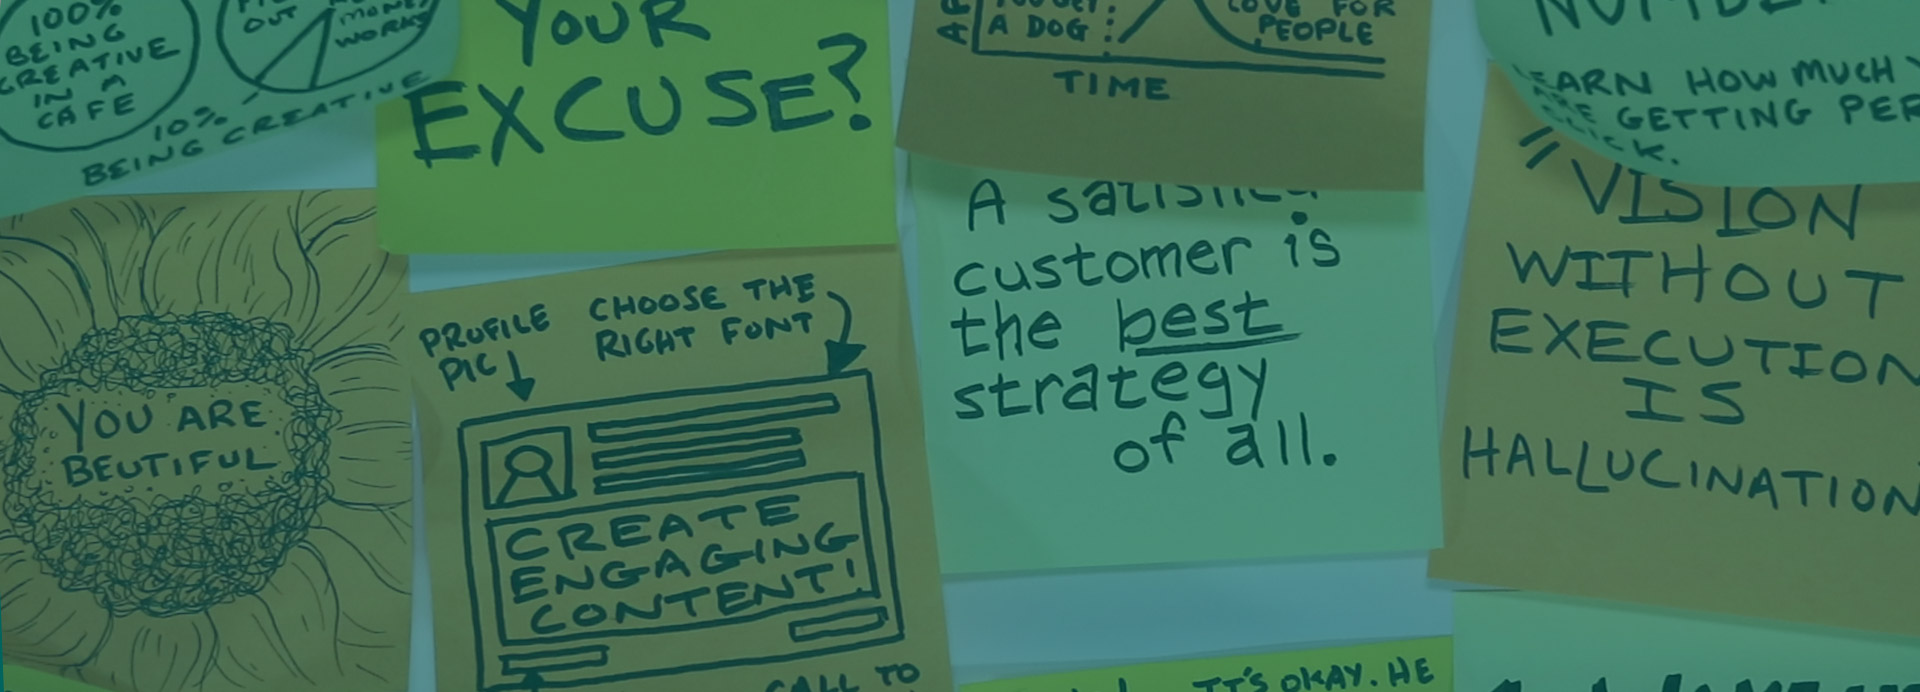 100%
BEING
CREATIVE
IN A
CAFE
OUT
MONEY
WORKS
10%
BEING CREATIVE
YOUR
EXCUSE?
A DOG
LOVE FOR
PEOPLE
TIME
LEARN HOW MUCH
GETTING PER
YOU ARE
BEUTIFUL
PROFILE
PIC
CHOOSE THE
RIGHT FONT
CREATE
ENGAGING
CONTENT!
CALL TO
A satisfied
customer is
the best
strategy
of all.
"VISION
WITHOUT
EXECUTION
IS
HALLUCINATION
IT'S OKAY. HE